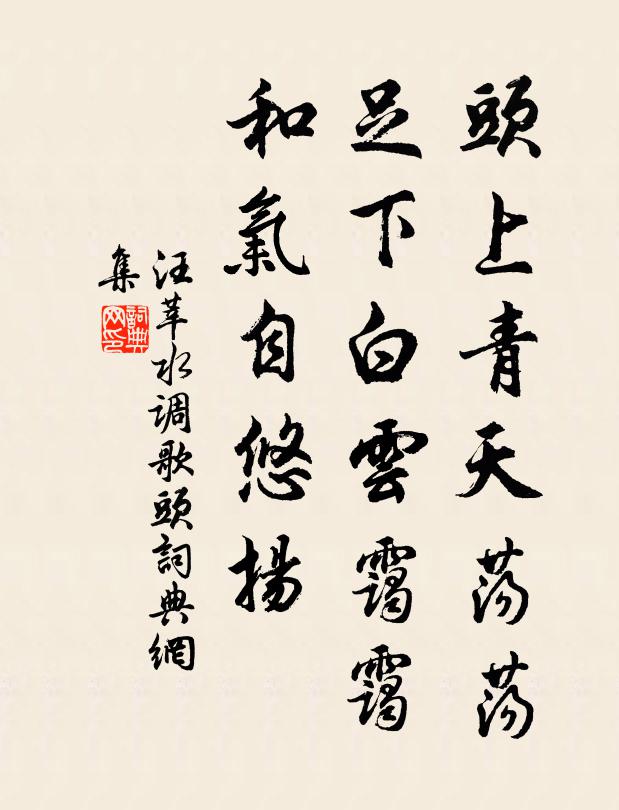 頭上青天蕩蕩
足下白雲靄靄
和氣自悠揚
汪莘水調歌頭詞典網
集
詞典
网印